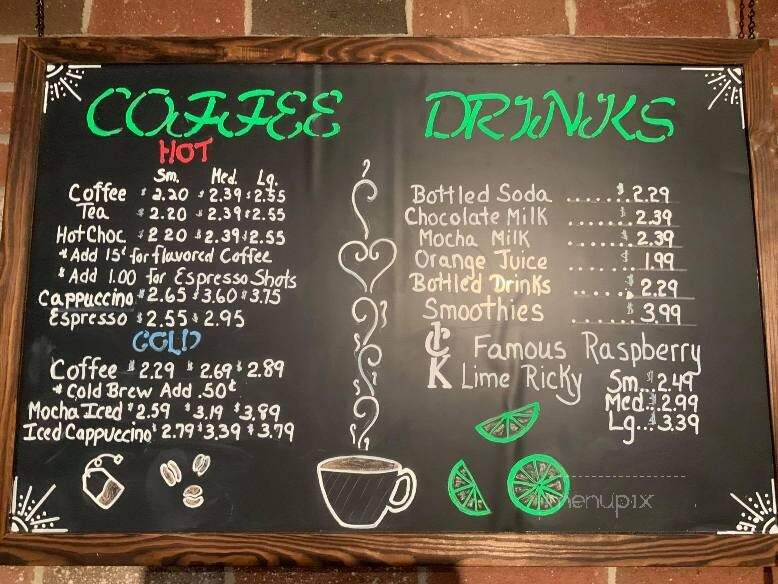 COFFEE
HOT
Sm. Med. Lg.
Coffee $2.20 $2.39 $2.55
Tea $2.20 $2.39 $2.55
Hot Choc. $2.20 $2.39 $2.55
* Add 15¢ for flavored Coffee
* Add 1.00 for Espresso Shots
Cappuccino $2.65 $3.60 $3.75
Espresso $2.55 $2.95
COLD
Coffee $2.29 $2.69 $2.89
* Cold Brew Add .50¢
Mocha Iced $2.59 $3.19 $3.89
Iced Cappuccino $2.79 $3.39 $3.79
DRINKS
Bottled Soda ...... $2.29
Chocolate Milk ...... $2.39
Mocha Milk ...... $2.39
Orange Juice ...... $1.99
Bottled Drinks ...... $2.29
Smoothies ...... $3.99
Famous Raspberry
K Lime Ricky
Sm...$2.49
Med..$2.99
Lg...$3.39
menupix